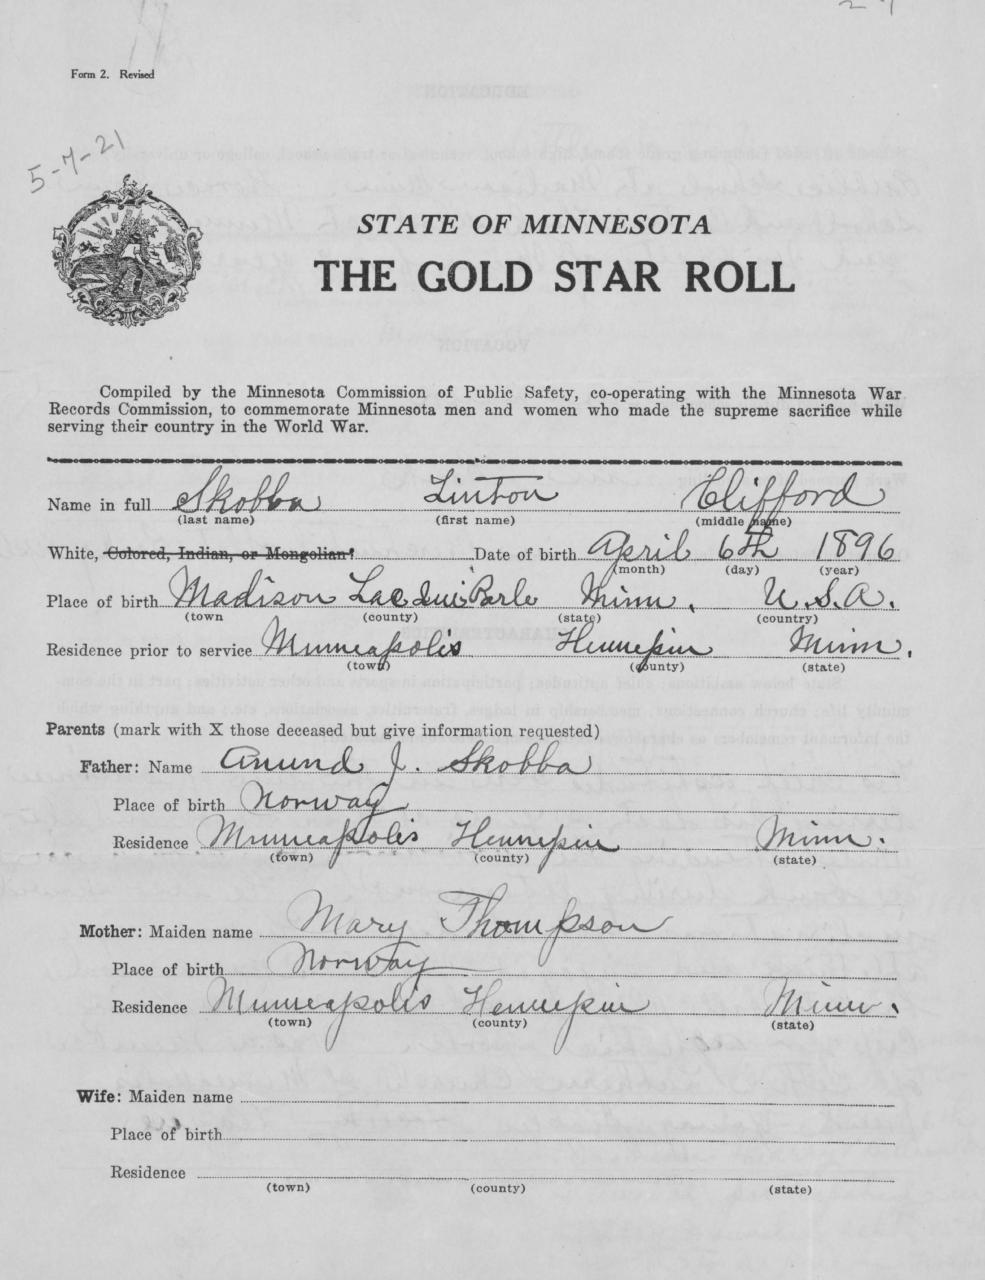 Form 2. Revised
5-7-21
STATE OF MINNESOTA
THE GOLD STAR ROLL
Compiled by the Minnesota Commission of Public Safety, co-operating with the Minnesota War
Records Commission, to commemorate Minnesota men and women who made the supreme sacrifice while
serving their country in the World War.
Name in full Skobba Linton Clifford
(last name) (first name) (middle name)
White, Colored, Indian, or Mongolian? Date of birth April 6th 1896
(month) (day) (year)
Place of birth Madison Lac Qui Parle Minn. U.S.A.
(town (county) (state) (country)
Residence prior to service Minneapolis Hennepin Minn.
(town) (county) (state)
Parents (mark with X those deceased but give information requested)
Father: Name Amund J. Skobba
Place of birth Norway
Residence Minneapolis Hennepin Minn.
(town) (county) (state)
Mother: Maiden name Mary Thompson
Place of birth Norway
Residence Minneapolis Hennepin Minn.
(town) (county) (state)
Wife: Maiden name
Place of birth
Residence
(town) (county) (state)